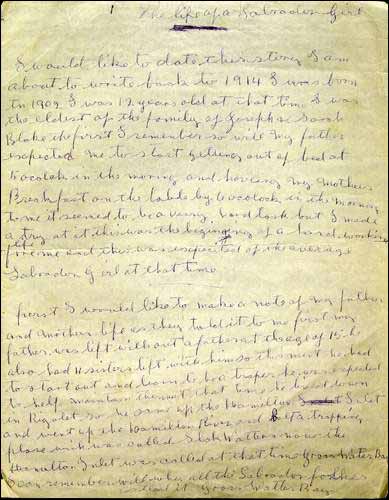 The life of a Labrador Girl
I would like to date this story I am
about to write back to 1914 I was born
In 1902 I was 12 years old at that time I was
the eldest of the family of Joseph & Sarah
Blake the first I remember so well my father
expected me to start getting out of bed at
in the morning and haveing my Mothers
Breakfast on the table by in the morning
to me it seemed to be a verry hard task but I made
a try at it this was the begining of a hard working
life for me and this was expected of the average
Labrador Girl at that time
first I would like to make a note of my father
and Mothers life as they told it to me first my
father was left without a father at the age of 15 he
also had 4 sisters left with him so this ment he had
to start out and learn to be a traper he was expected
to help maintain them at that time he lived down
in Rigolet so he came up the Hamilton Inlet
and went up the Hamilton River and a trapping
place wich was called Slack Waters now the
Hamilton Inlet was called at that time Groswater Bay
remember well when all the Labrador
it Groswater Bay